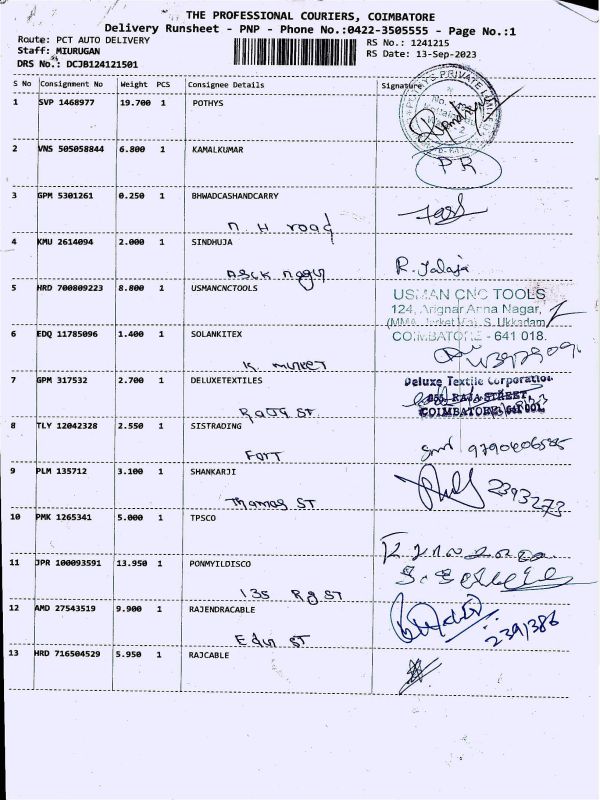 THE PROFESSIONAL COURIERS, COIMBATORE
Delivery Runsheet - PNP - Phone No.:0422-3505555 - Page No.:1
Route: PCT AUTO DELIVERY RS No.: 1241215
Staff: MIURUGAN RS Date: 13-Sep-2023
DRS No.: DCJB124121501
S No Consignment No Weight PCS Consignee Details Signature
1 SVP 1468977 19.700 1 POTHYS
2 VNS 505058844 6.800 1 KAMALKUMAR
PR
3 GPM 5301261 0.250 1 BHWADCASHANDCARRY
N. H road
4 KMU 2614094 2.000 1 SINDHUJA
R. Jalaja
5 HRD 700809223 8.800 1 USMANCNCTOOLS
USMAN CNC TOOLS
124, Arignar Anna Nagar,
S. Ukkadam
COIMBATORE - 641 018.
6 EDQ 11785096 1.400 1 SOLANKITEX
K. Market
7 GPM 317532 2.700 1 DELUXETEXTILES
Deluxe Textile Corporation
RAJA STREET,
COIMBATORE-641 001.
ST
8 TLY 12042328 2.550 1 SISTRADING
Fort
9 PLM 135712 3.100 1 SHANKARJI
2393273
Thamas ST
10 PMK 1265341 5.000 1 TPSCO
11 JPR 100093591 13.950 1 PONMYILDISCO
135 Rg ST
12 AMD 27543519 9.900 1 RAJENDRACABLE
2391386
ST
13 HRD 716504529 5.950 1 RAJCABLE